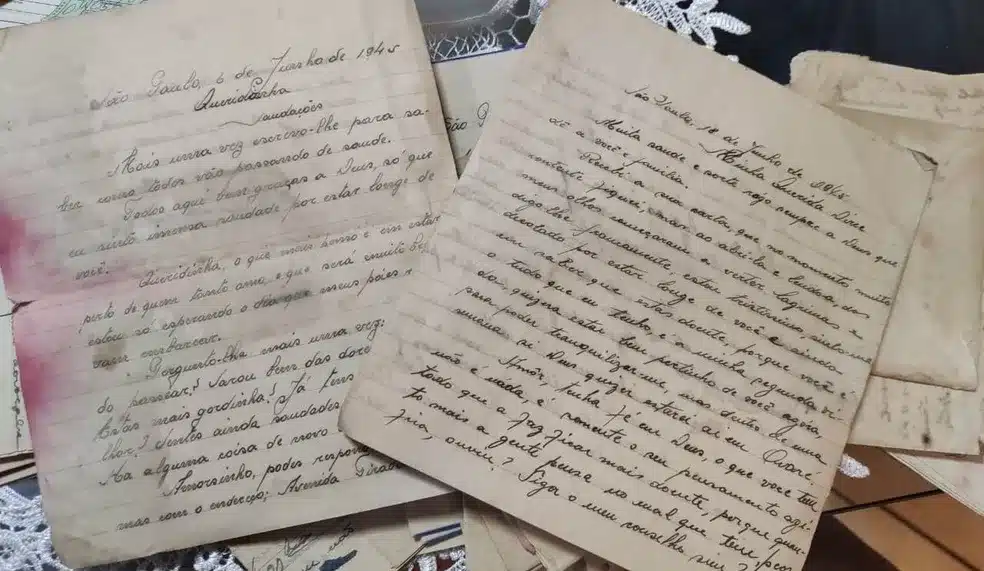 São Paulo, 6 de Junho de 1945
Queridinha
Saudações
Mais uma vez escrevo-lhe para sa-
ber como todos vão passando de saude.
Todos aqui bem graças a Deus, só que
eu sinto imensa saudade por estar longe de
você.
Queridinha, o que mais penso é em estar
perto de quem tanto amo, e que será muito
estou só esperando o dia que meus
vam embarcar.
Pergunto-lhe mais uma vez:
do passar? Sarou bem das
Estás mais gordinha? Já tens
lhor? Sentes ainda saudades
Ha alguma coisa de novo
Amorsinho, podes
mas com o endereço; Avenida
São P
São Paulo, 18 de Junho de
Minha Querida Dine
Muita saude e sorte rogo sempre a Deus que
dê a você e familia.
Recebi a sua carta, que no momento muito
contente fiquei, mas ao abri-la e lida os
meus olhos começaram a verter lagrimas e
digo-lhe francamente, estou tristissimo, sinto-me
derrotado por estar longe de você e ainda
em saber que estás doente, porque você é
o tudo que eu tenho, é a minha segunda vi-
da, quizera estar bem pertinho de você agora,
para poder tranquilizar-me, mas dentro de uma
semana si Deus quizer estarei ai em Avaré.
Amôr, tenha fé em Deus, o que você tem
não é nada, é somente o seu pensamento agi-
tado que a faz ficar mais doente, porque quan-
to mais a gente pensa no mal que tem, peor
fica, ouviu? Siga o meu conselho sim?